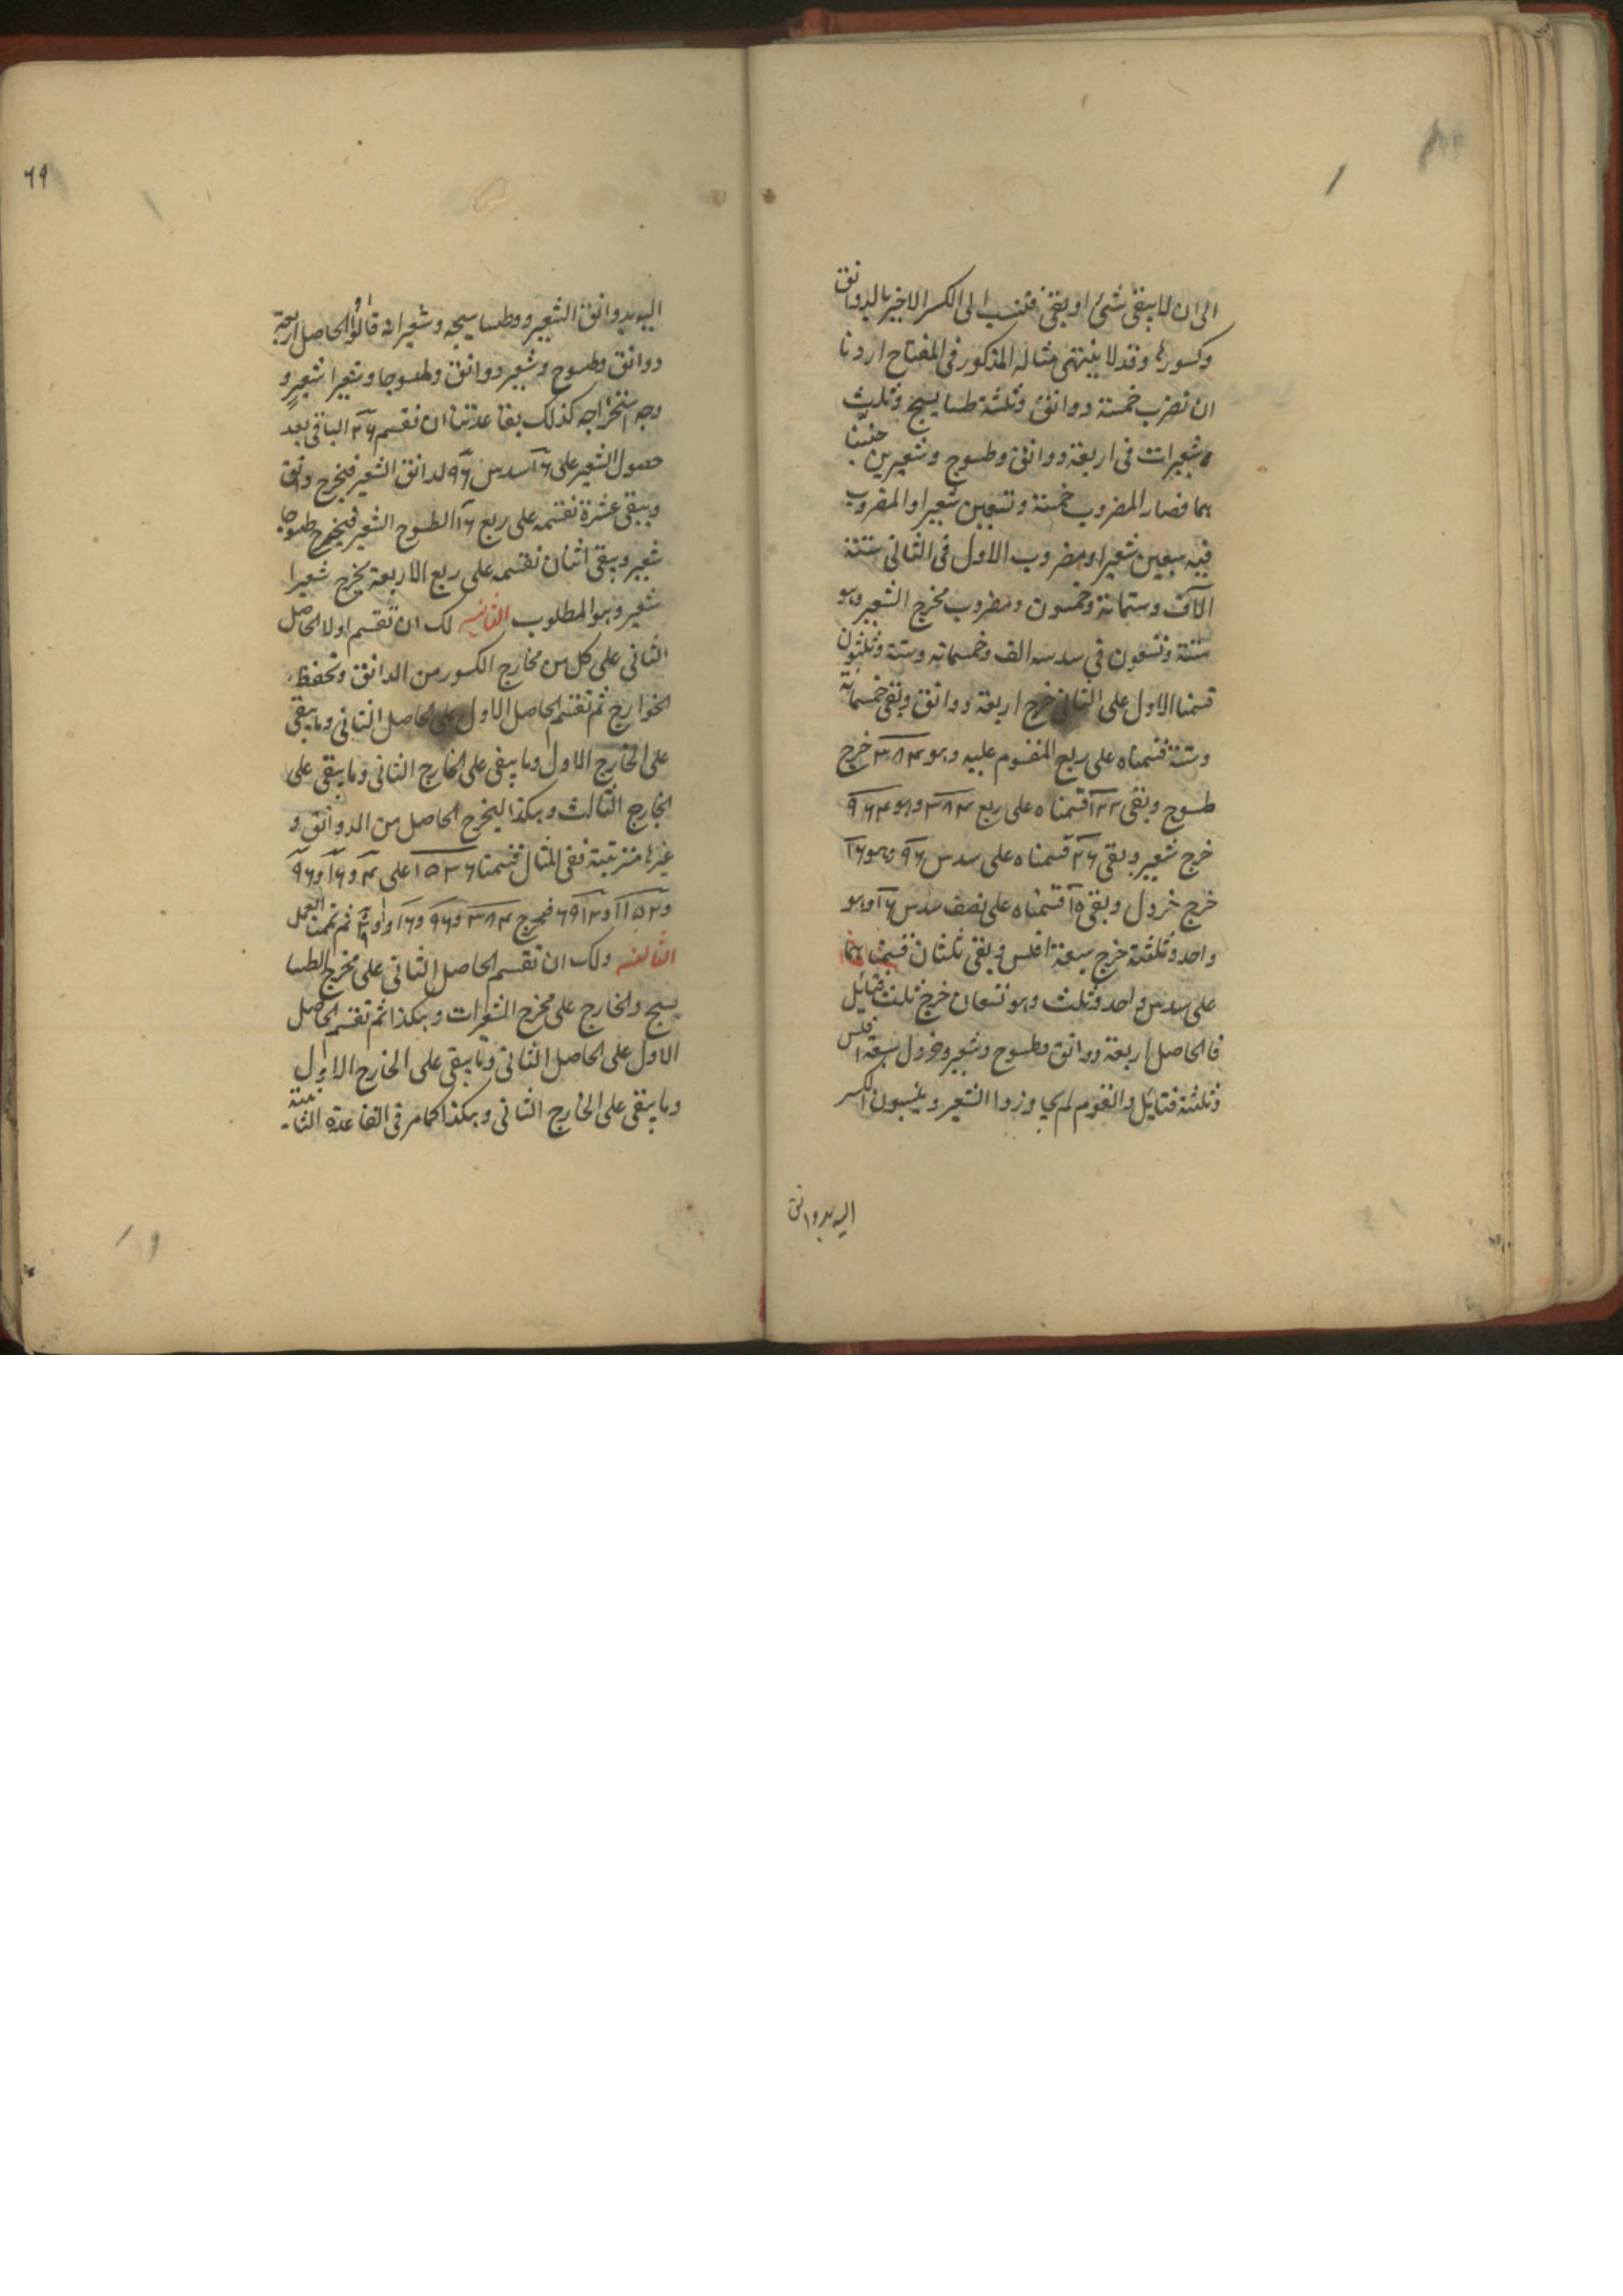 الى ان لا يبقى شئ او بقى فتنسب الى الكسر الاخير بالدوانق
وكسورها وقد لا ينتهى مثاله المذكور فى المفتاح اردنا
ان نضرب خمسة دوانق وثلثة طسايسج وثلث
شعيرات فى اربعة دوانق وطسوج وشعيرين جنسنا
هما فصار المضروب خمسة وتسعين شعيرا والمضروب
فيه سبعين شعيرا ومضروب الاول فى الثانى ستة
الآف وستمائة وخمسون ومضروب مخرج الشعير وهو
ستة وتسعون فى سدسه الف وخمسمائه وستة وثلثون
قسمنا الاول على الثانى خرج اربعة دوانق وبقى خمسمائة
وستة قسمناه على ربع المقسوم عليه وهو ٣٨٤ خرج
طسوج وبقى ١٢٢ قسمناه على ربع ٣٨٤ وهو ٩٦
خرج شعير وبقى ٢٦ قسمناه على سدس ٩٦ وهو ١٦
خرج خردل وبقى ١٠ قسمناه على نصف سدس ١٦ وهو
واحد وثلثة خرج سبعة افلس وبقى ثلثان قسمناهما
على سدس واحد وثلث وهو تسعان خرج ثلث فتائل
فالحاصل اربعة دوانق وطسوج وشعير وخردل سبعة افلس
وثلثة فتايل والقوم لم يجاوزوا الشعير وينسبون الكسر
اليه بدوانق
٦٩
اليه بدوانق الشعير وطساسيجه وشعيراته قالوا والحاصل اربعة
دوانق وطسوج وشعير دوانق وطسوجا وشعيرا شعير و
وجه استخراجه كذلك بقاعدتنا ان نقسم ٢٦ الباقى بعد
حصول الشعير على ١٦ سدس ٩٦ لدانق الشعير فيخرج دانق
ويبقى عشرة نقسمه على ربع ١٦ الطسوج الشعير فيخرج طسوجا
شعير ويبقى اثنان نقسمه على ربع الاربعة يخرج شعيرا
شعير وهو المطلوب الثانيه لك ان تقسم اولا الحاصل
الثانى على كل من مخارج الكسور من الدانق وتحفظ
الخوارج ثم تقسم الحاصل الاول على الحاصل الثانى وما يبقى
على الخارج الاول وما يبقى على الخارج الثانى وما يبقى على
الخارج الثالث وهكذا ليخرج الحاصل من الدوانق و
غيرها مترتبة ففى المثال قسمنا ١٥٣٦ على ٤ و ١٦ و ٩٦
و ١١٥٢ و ٦٩١٢ فخرج ٣٨٤ و ٩٦ و ١٦ و ثم تممنا العمل
الثالثه ولك ان تقسم الحاصل الثانى على مخرج الطسا
سيج والخارج على مخرج الشعيرات وهكذا ثم تقسم الحاصل
الاول على الحاصل الثانى وما يبقى على الخارج الاول
وما يبقى على الخارج الثانى وهكذا كما مر فى القاعدة الثانية